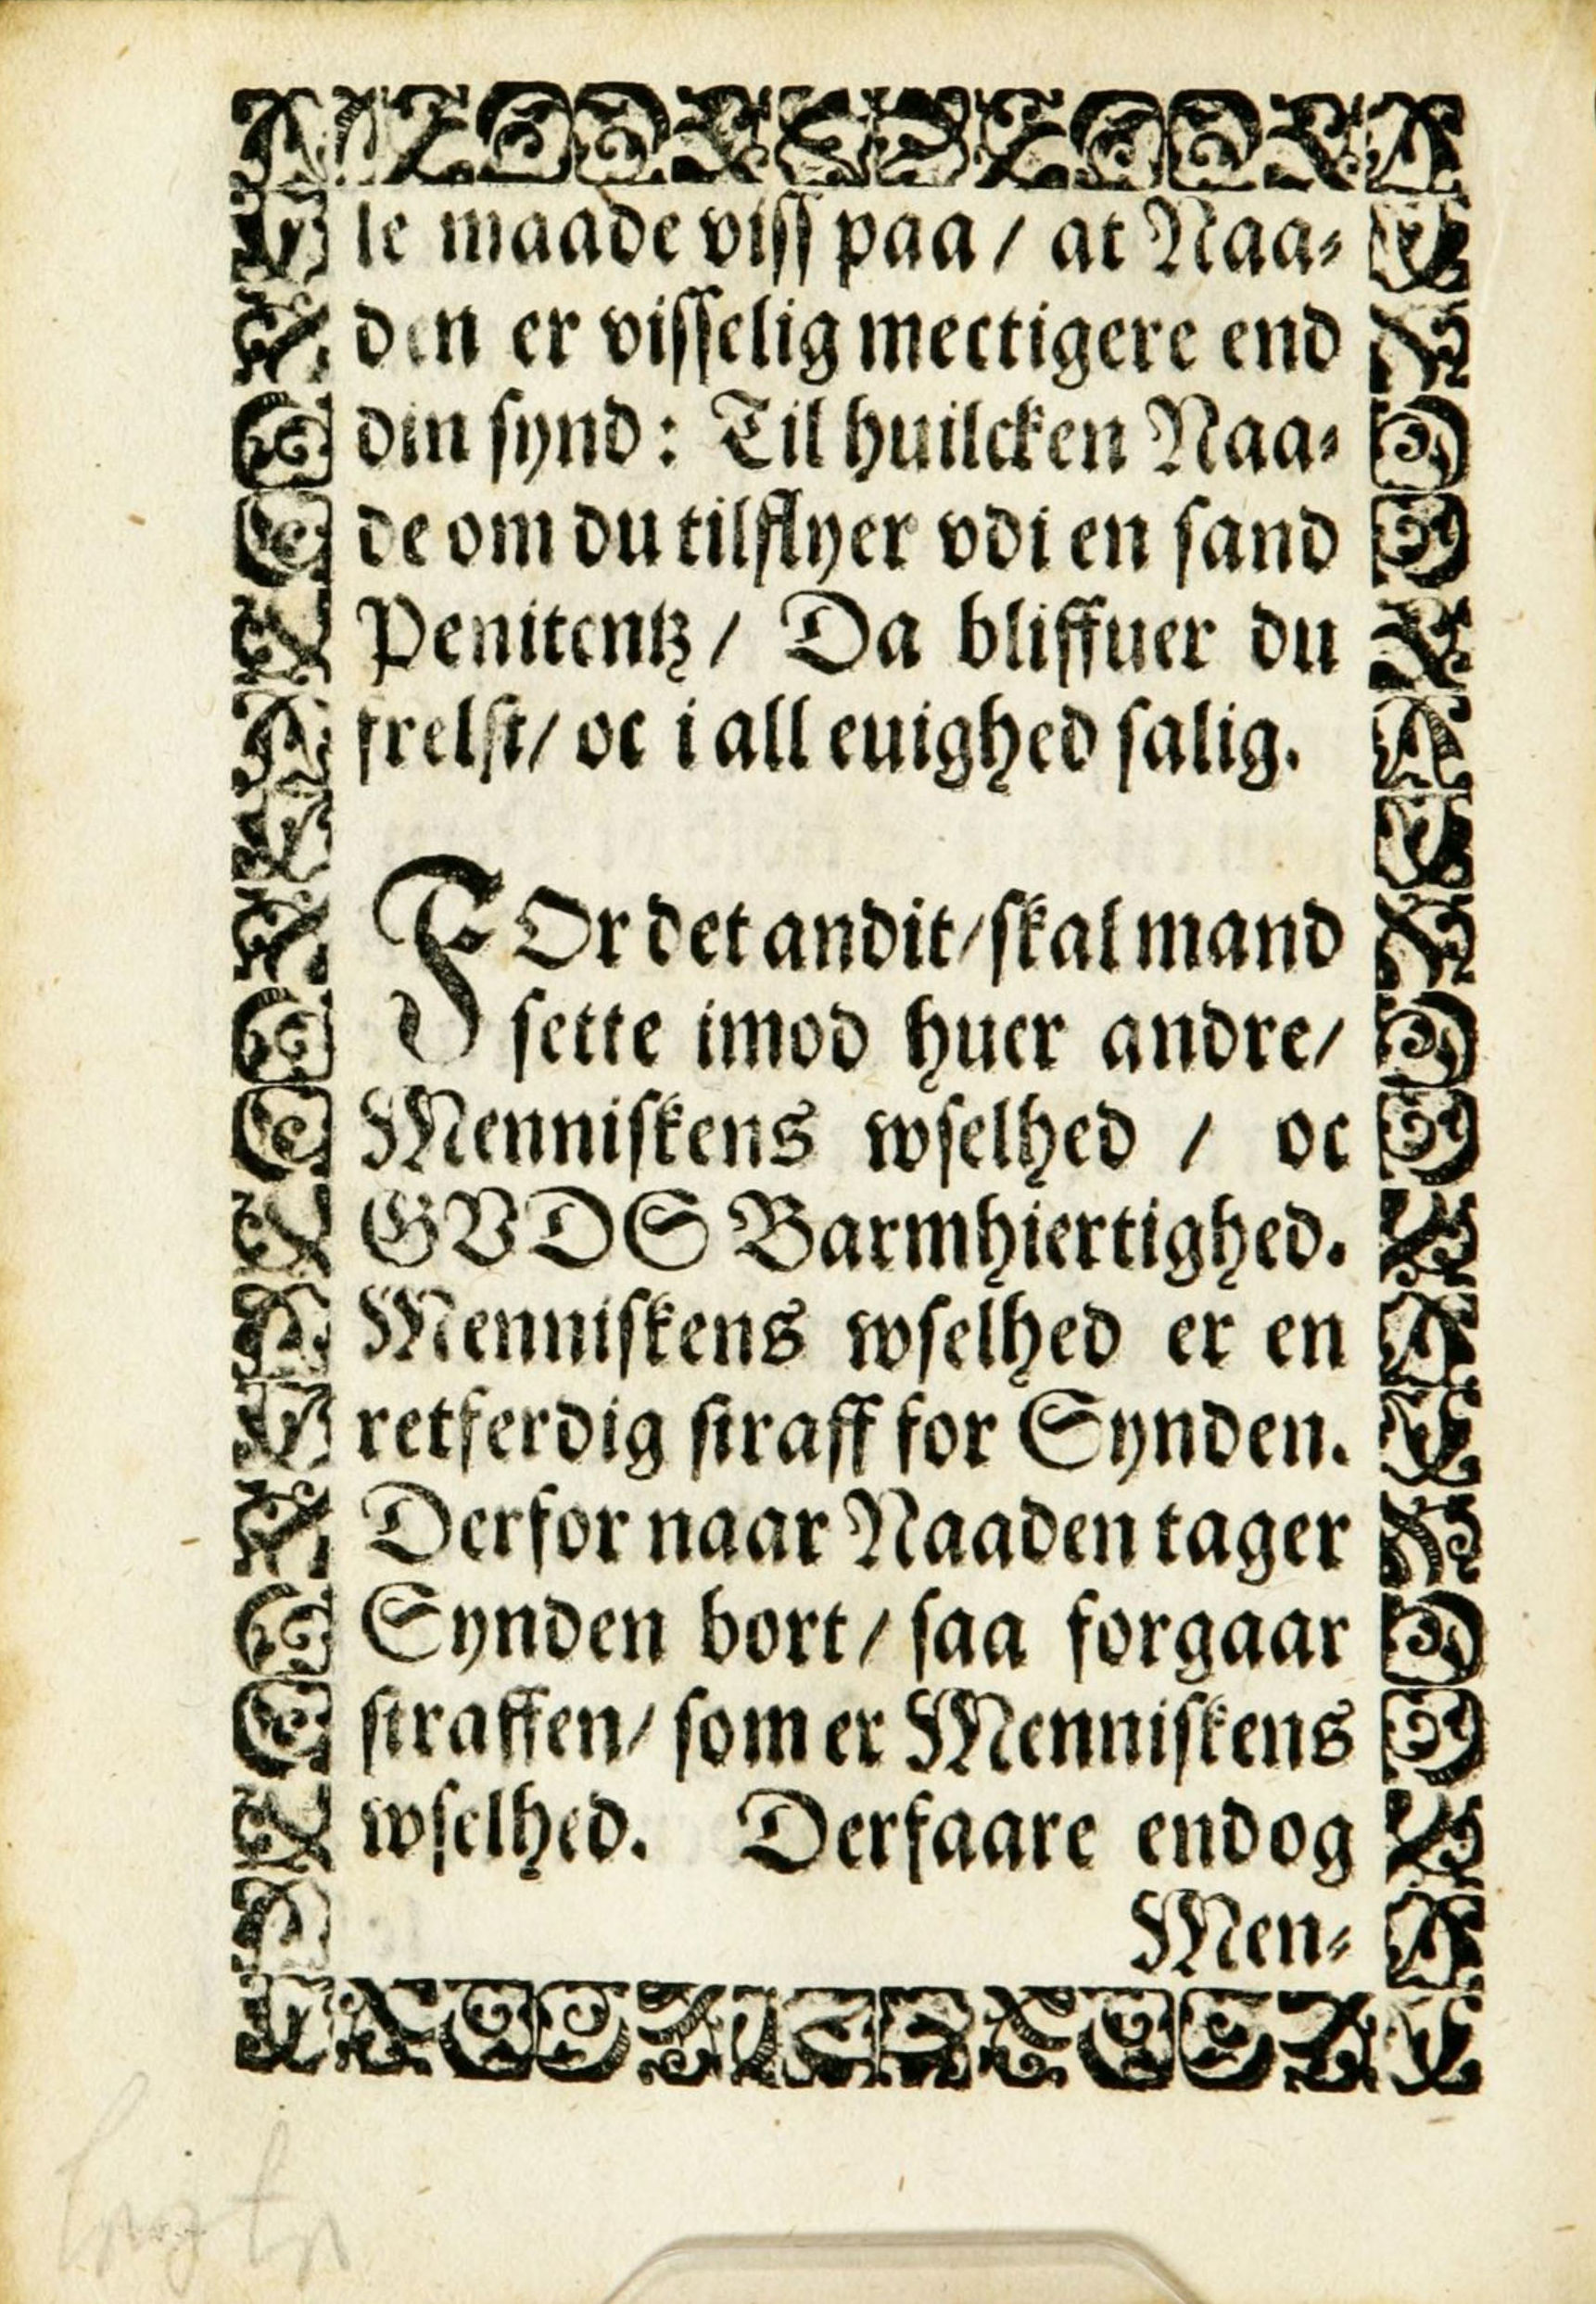 le maade viss paa / at Naa⸗
den er visselig mectigere end
din synd: Til huilcken Naa⸗
de om du tilflyer vdi en sand
Penitentz / Da bliffuer du
frelst / oc i all euighed salig.
FOr det andit / skal mand
sette imod huer andre /
Menniskens wselhed / oc
GVDS Barmhiertighed.
Menniskens wselhed er en
retferdig straff for Synden.
Derfor naar Naaden tager
Synden bort / saa forgaar
straffen / som er Menniskens
wselhed. Derfaare endog
Men⸗